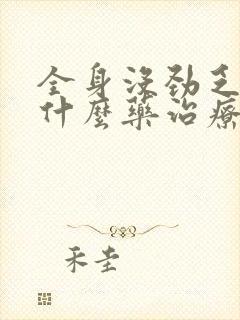 全身没劲乏
什麼藥治療
禾圭